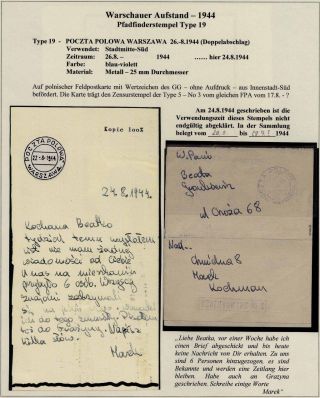 Warschauer Aufstand – 1944
Pfadfinderstempel Type 19
Type 19 - POCZTA POLOWA WARSZAWA 26.-8.1944 (Doppelabschlag)
Verwendet: Stadtmitte-Süd
Zeitraum: 26.8. - 1944 ..... hier 24.8.1944
Farbe: blau-violett
Material: Metall – 25 mm Durchmesser
Auf polnischer Feldpostkarte mit Wertzeichen des GG – ohne Aufdruck – aus Innenstadt-Süd
befördert. Die Karte trägt den Zensurstempel des Type 5 – No 3 vom gleichen FPA vom 17.8. - ?
Am 24.8.1944 geschrieben ist die
Verwendungszeit dieses Stempels nicht
endgültig abgeklärt. In der Sammlung
belegt vom 1944
Kopie 100%
POCZTA POLOWA
WARSZAWA
24.8.1944.
Kochana Beatko
tydzień temu wysłałem
list nie mam żadnej
wiadomości od Ciebie
U nas na mieszkaniu
przybyło 6 osób. Wszyscy
znajomi
do tego
też do Grażyny. Napisz
kilka słów.
Marek
W. Pani
Beata
ul Hoża 68
Nad.
Chmielna 8
Marek
Kochman
„Liebe Beatka, vor einer Woche habe ich
einen Brief abgeschickt und bis heute
keine Nachricht von Dir erhalten. Zu uns
sind 6 Personen hinzugezogen, es sind
Bekannte und werden eine Zeitlang hier
bleiben. Habe auch an Grazyna
geschrieben. Schreibe einige Worte
Marek"